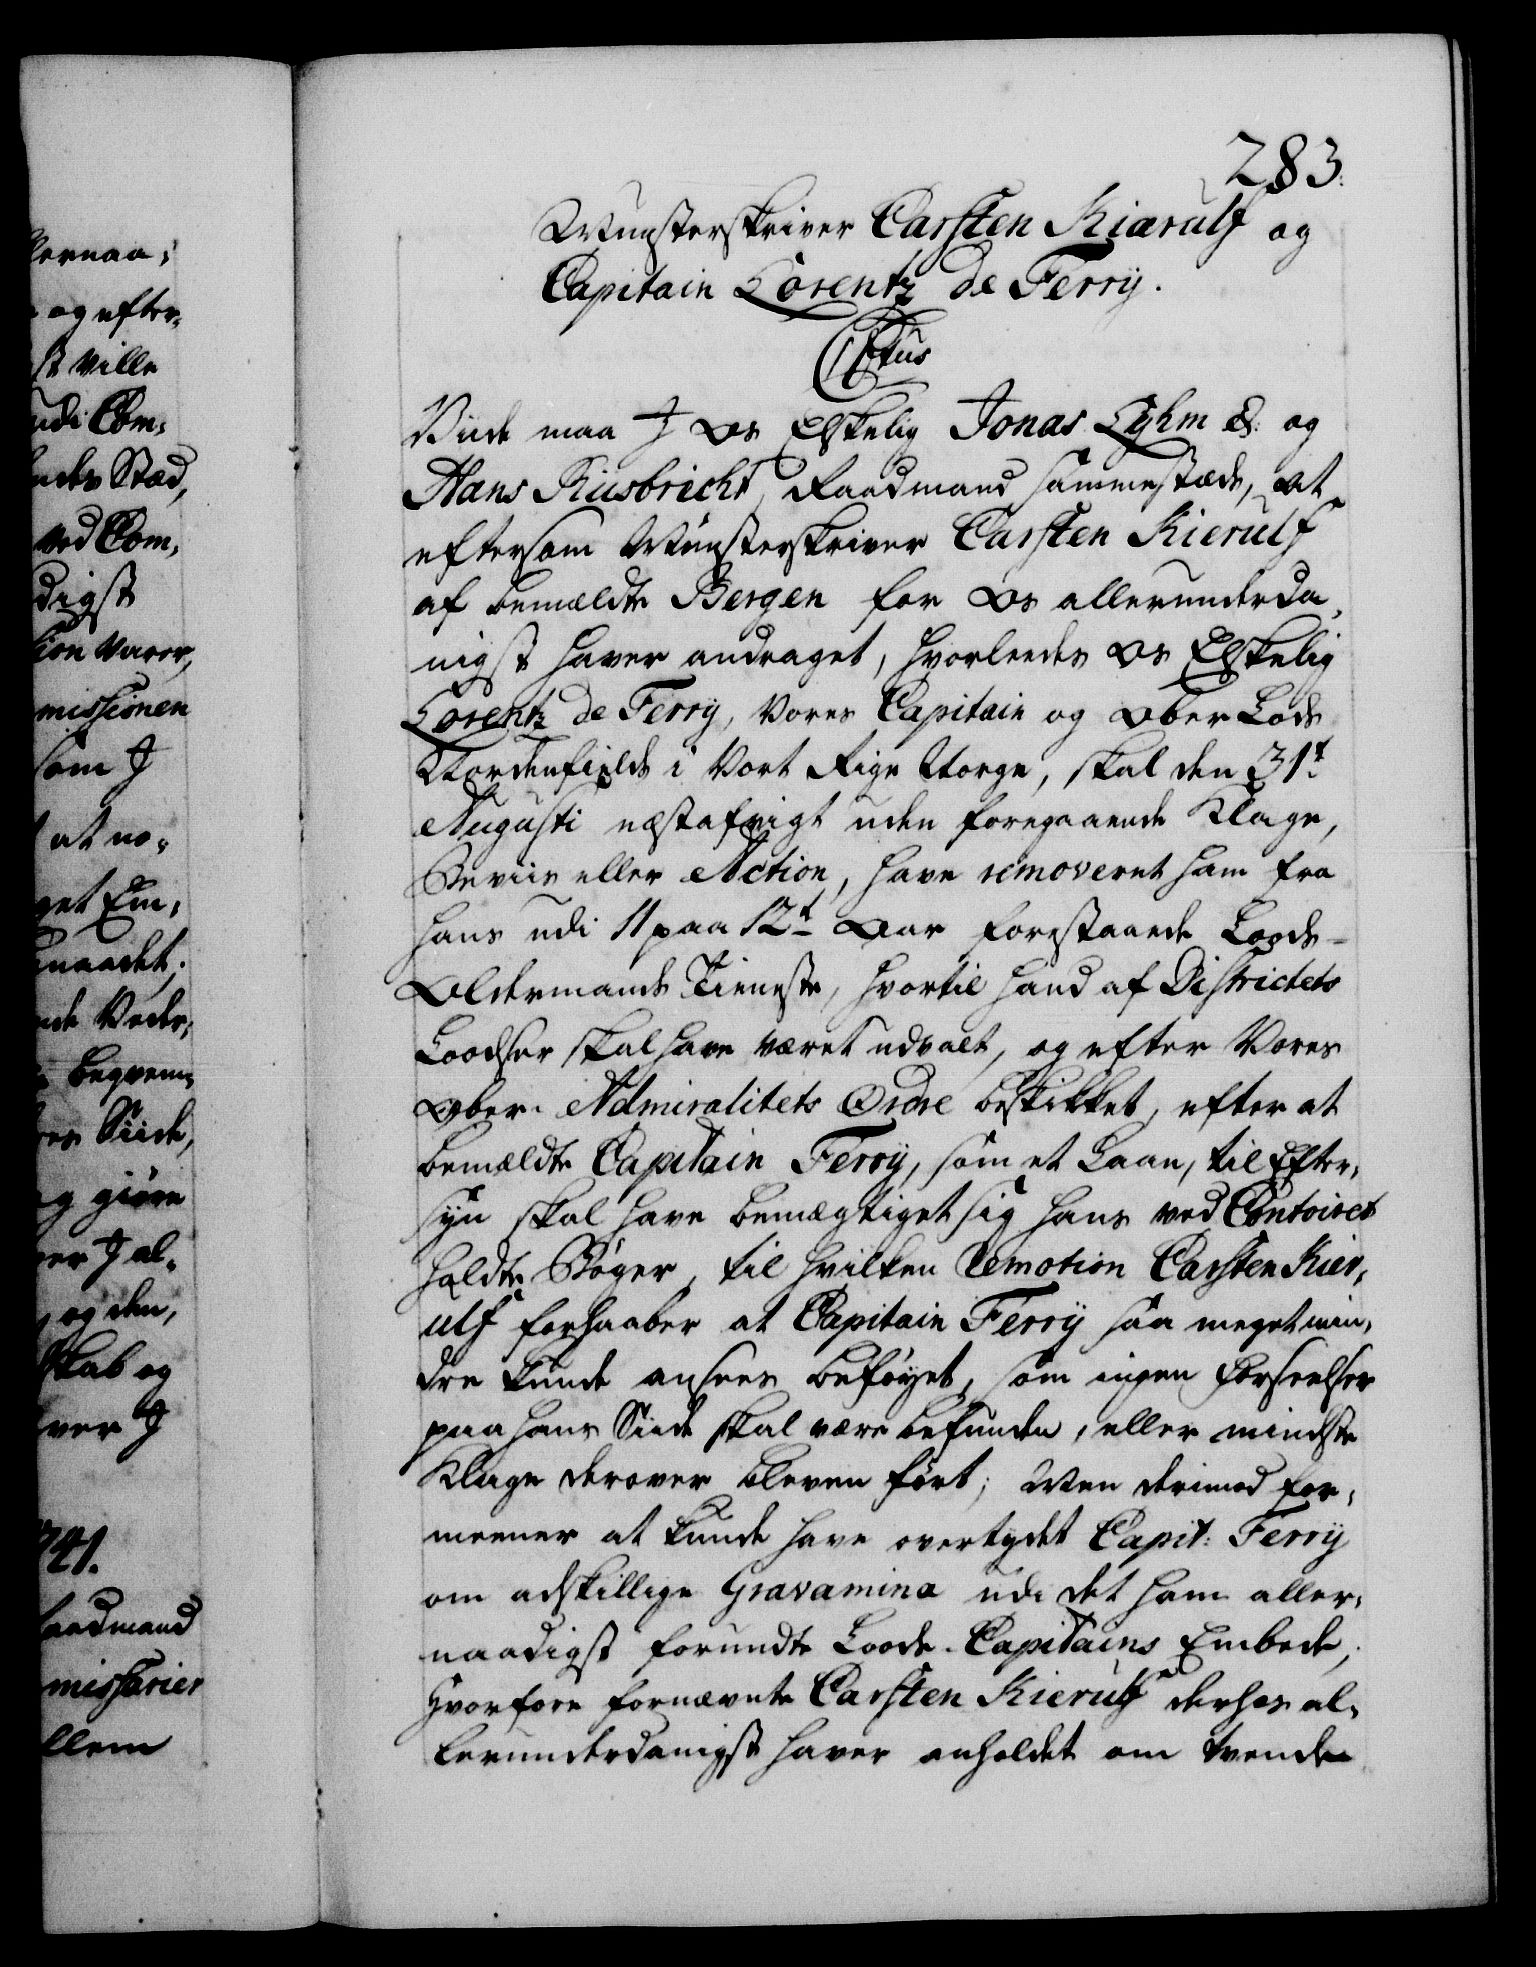 283.
Mynsterskriver Carsten Kiærulf og
Capitain Lorentz de Ferry.
CVtus
Viide maa I Os Elskelig Jonas Lyhm &: og
Hans Kiisbricht, Raadmand sammestæds, at
eftersom Mynsterskriver Carsten Kierulf
af bemældte Bergen for Os allerunderda,
nigst haver andraget, hvorleedes Os Elskelig
Lorentz de Ferry, Vores Capitain og Ober Lods
Nordenfields i Vort Rige Norge, skal den 31t
Augusti næstafvigt uden foregaaende Klage,
Beviis eller Action, have removeret ham fra
hans udi 11 paa 12t Aar forestaaende Loods-
Oldermands Tieneste, hvortil hand af Districtets
Loodser skal have været udvalt, og efter Vores
Ober-Admiralitets Ordre beskikket, efter at
bemældte Capitain Ferry, som et Laan, til Efter,
syn skal have bemægtiget sig hans ved Contoiret
holdte Bøger, til hvilken Remotion Carsten Kier,
ulf forhaaber at Capitain Ferry saa meget min,
dre kunde ansees beføyet, som ingen Forseelser
paa hans Siide skal være befunden, eller mindste
Klage derover bleven ført; Men derimod for,
meener at kunde have overtydet Capit: Ferry
om adskillige Gravamina udi det ham aller,
naadigst forundte Loods-Capitains Embede,
Hvorfore fornævnte Carsten Kierulf derhos al,
lerunderdanigst haver anholdet om tvende
lernaa,
og efter,
st ville
udi Com,
ndes Stæd,
ved Com,
digst
tion varer,
missionen
som I
at no,
get Em,
naadet.
nde Veder,
beqvem,
res Siide,
og giøre
ver I al,
og den,
skab og
ver I
741.
aadmand
missarier
llem